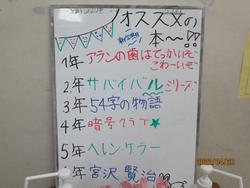 オススメの
本〜!!
1年 アランの歯はでっかいぞ
こわーいぞ
2年 サバイバルシリーズ
3年 54字の物語
4年 暗号クラブ★
5年 ヘレン・ケラー
年 宮沢 賢治